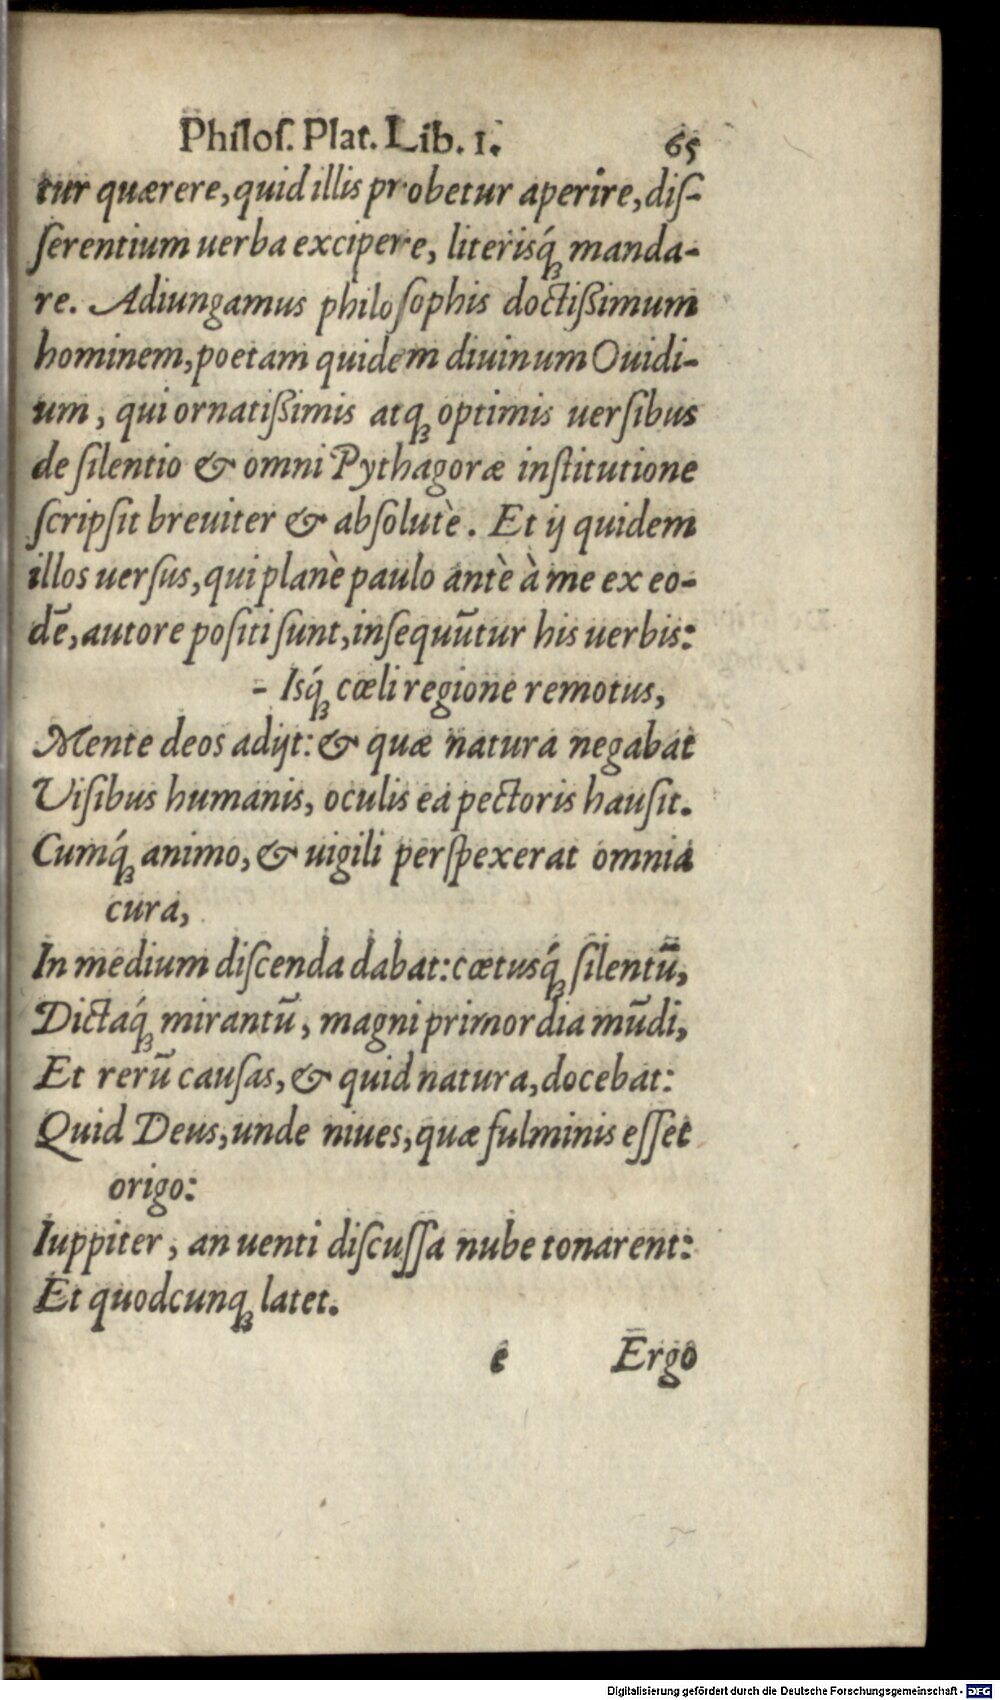 Philoſ. Plat. Lib. 1. 65
tur quærere, quid illis probetur aperire, diſ-
ſerentium uerba excipere, literisq́; manda-
re. Adiungamus philoſophis doctißimum
hominem, poetam quidem diuinum Ouidi-
um, qui ornatißimis atq; optimis uerſibus
de ſilentio & omni Pythagoræ inſtitutione
ſcripſit breuiter & abſolutè. Et ij quidem
illos uerſus, qui planè paulo antè à me ex eo-
dē, autore poſiti ſunt, inſequūtur his uerbis:
- Isq́; cœli regione remotus,
Mente deos adijt: & quæ natura negabat
Viſibus humanis, oculis ea pectoris hauſit.
Cumq́; animo, & uigili perſpexerat omnia
cura,
In medium diſcenda dabat: cœtusq́; ſilentū,
Dictaq́; mirantū, magni primordia mūdi,
Et rerū cauſas, & quid natura, docebat:
Quid Deus, unde niues, quæ fulminis eſſet
origo:
Iuppiter, an uenti diſcuſſa nube tonarent:
Et quodcunq; latet.
e Ergo
Digitalisierung gefördert durch die Deutsche Forschungsgemeinschaft - DFG